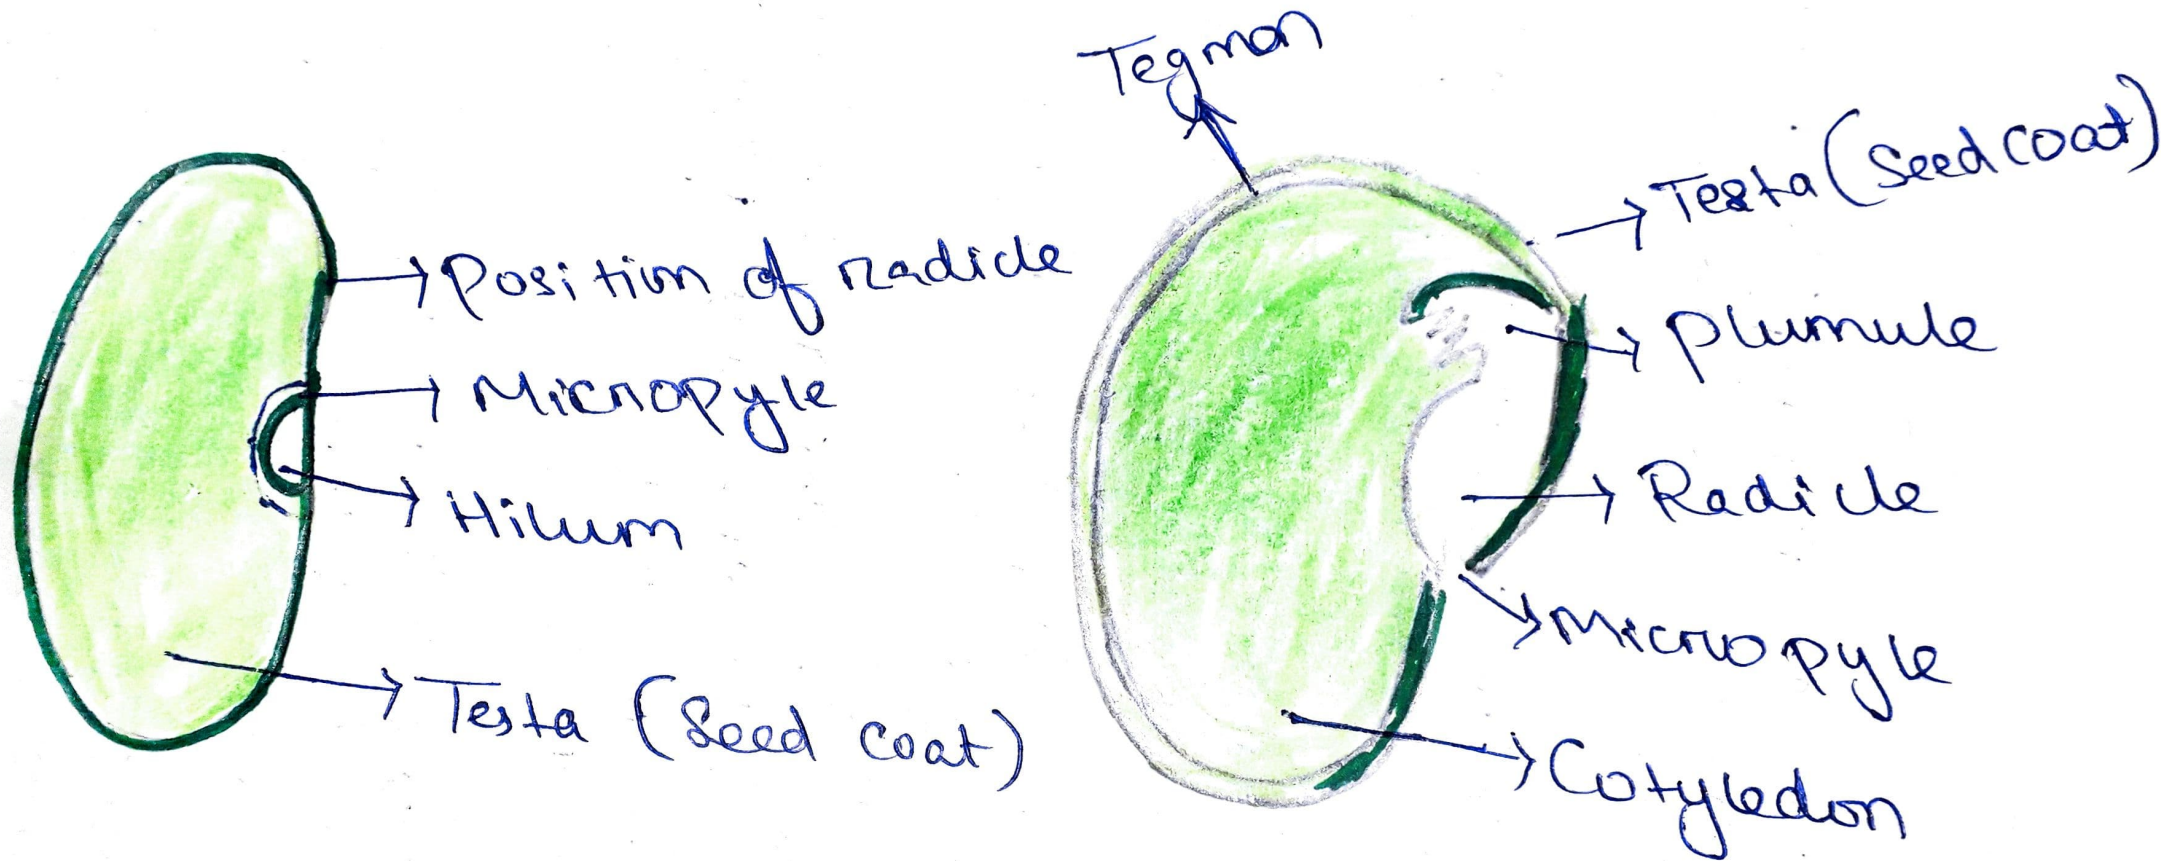 Position of radicle
Micropyle
Hilum
Testa (Seed coat)
Tegmon
Testa (Seed coat)
Plumule
Radicle
Micropyle
Cotyledon